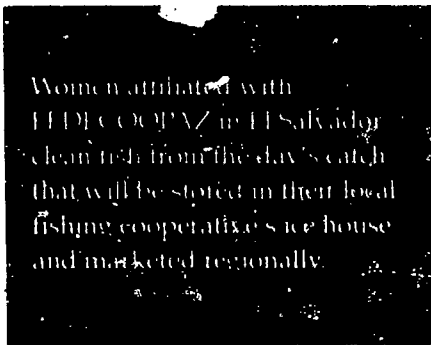 Women affiliated with
FEDECOOPAZ in El Salvador
clean fish from the day's catch
that will be stored in their local
fishing cooperative's ice house
and marketed regionally.